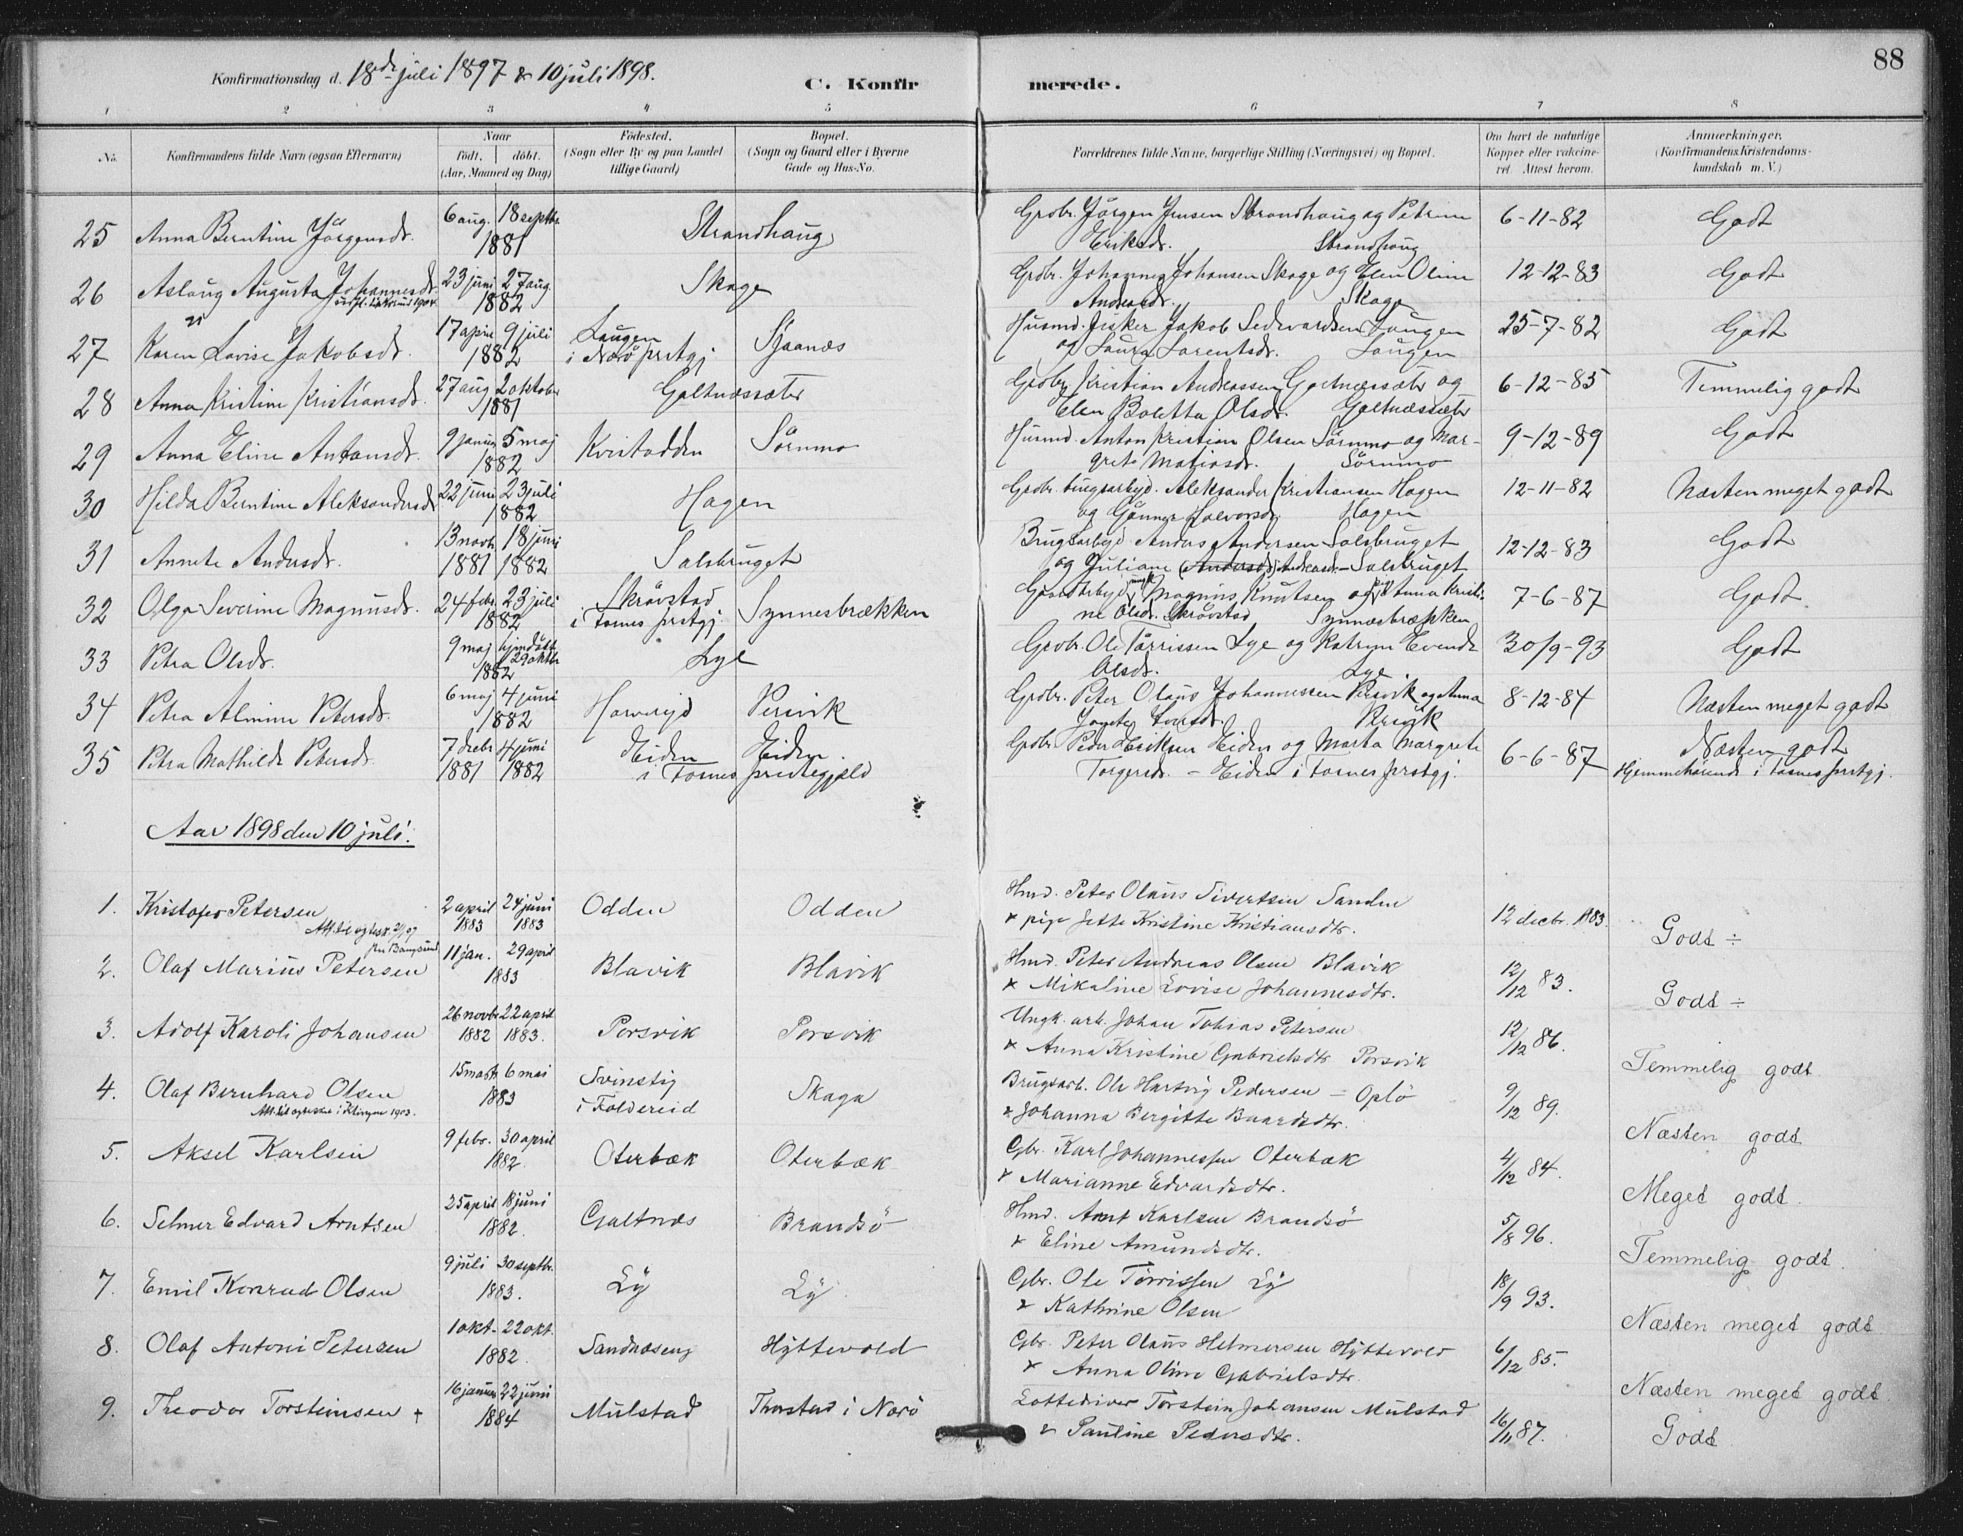 88
Konfirmationsdag d. 18de juli 1897 & 10 juli 1898.
C. Konfirmerede.
1 2 3 4 5 6 7 8
No. Konfirmandens fulde Navn (ogsaa Efternavn) Naar født. døbt. (Aar, Maaned og Dag) Fødested. (Sogn eller By og paa Landet tillige Gaard) Bopæl. (Sogn og Gaard eller i Byerne Gade og Hus-No. Forældrenes fulde Navne, borgerlige Stilling (Næringsvei) og Bopæl. Om havt de naturlige Kopper eller vakcineret. Attest herom. Anmærkninger. (Konfirmandens Kristendomskundskab m. V.)
25 Anna Berntine Jörgensdr. 6 aug. 18 septbr. 1881 Strandhaug Grdbr. Jörgen Jensen Strandhaug og Petrine Eriksdr. Strandhaug 6-11-82 Godt
26 Aslaug Augusta Johannesdr. 23 juni 27 aug. 1882 Skage Grdbr. Johannes Johansen Skage og Elen Oline Andersdr. Skage 12-12-83 Godt
27 Karen Lovise Jakobsdr. 17 april 9 juli 1882 Laugen i Nærö prstgj Sjaanæs Husmd. fisker Jakob Sedvardsen Laugen og Laura Lorentsdr. Laugen 25-7-82 Godt
28 Anna Kristine Kristiansdr. 27 aug 2 oktober 1881 Galtnessæter Grdbr. Kristian Andreassen Galtnæssæter og Elen Boletta Olsdr. Galtnæssæter 6-12-85 Temmelig godt
29 Anna Eline Antonsdr. 9 januar 5 maj 1882 Kvistadden Sørnmo Husmd. Anton Kristian Olsen Sørnmo og Margrete Matiasdr. Sørnmo 9-12-89 Godt
30 Hilda Berntine Aleksandersdr. 22 juni 23 juli 1882 Hagen Grdbr. brugsarbejd. Aleksander Kristiansen Hagen og Gunnær Halvorsdr. Hagen 12-11-82 Næsten meget godt
31 Annete Andersdr. 13 novbr. 18 juni 1881 1882 Salsbruget Brugsarbejd Anders Andersen Salsbruget og Juliane Andreasdr. - Salsbruget 12-12-83 Godt
32 Olga Severine Magnusdr. 24 febr. 23 juli 1882 Skrövstad i Fosnes prstgj. Synnesbrækken Magnus Knutsen og Anna Kristine Olsdr. Skrövstad Synnesbrækken 7-6-87 Godt.
33 Petra Olsdr. 9 maj hjmdöbt 29 oktbr 1882 Lye Grdbr. Ole Törrissen Lye og Katrine Olsdr. Lye 30/9-93 Godt
34 Petra Almine Petersdr. 6 maj 4 juni 1882 Persvik Grdbr. Peter Olaus Johannessen Persvik og Anna Persvik 8-12-84 Næsten meget godt
35 Petra Mathilde Petersdr. 7 decbr 4 juni 1881 1882 Eiden Eiden i Fosnes prestegjeld Grdbr. Peder Eriksen Eiden og Marta Margrete Torgersdr. - Eiden i Fosnes prstgj. 6-6-87 Næsten godt Hjemmehörende i Fosnes prstgj.
Aar 1898 den 10 juli.
1. Kristofer Petersen 2 april 1883 24 juni 1883 Odden Odden Hmd. Peter Olaus Sivertsen Sanden & pige Jette Kristine Kristiansdtr. 12 decbr. 1883. Godt ÷
2. Olaf Marius Petersen 11 jan. 29 april 1883 Blavik Blavik Hmd. Peter Andreas Olsen Blavik & Mikaline Lovise Johannesdtr. 12/12 83. Godt ÷
3. Adolf Karoli Johansen 26 novbr 22 april 1882 1883. Porsvik Porsvik Ungk. arb. Johan Tobias Petersen & Anna Kristine Gabrielsdtr Porsvik 12/12 86. Temmelig godt
4. Olaf Bernhard Olsen 15 marts 6 mai 1883 Svinstig i Foldereid Skaga Brugsarb. Ole Hartvig Pedersen - Oplö & Johanna Bergitte Baardsdtr. 9/12 89. Næsten godt
5. Aksel Karlsen 9 febr. 30 april 1882. Oterbæk Oterbæk Gbr. Karl Johannessen Oterbæk & Marianne Edvardsdtr. 4/12 84. Meget godt.
6. Selmer Edvard Arntsen 25 april 18 juni 1882. Galtnæs Brandsö Hmd. Arnt Karlsen Brandsö & Eline Amundsdtr. 5/8 96. Temmelig godt.
7. Emil Konrad Olsen 9 juli 30 septbr. 1883. Lÿ Lÿ Gbr. Ole Törrissen Lÿ & Kathrine Olsen 18/9 93. Næsten meget godt
8. Olaf Antoni Petersen 1 okt. 22 okt. 1882. Sandnæseng Hyttevold Gbr. Peter Olaus Helmersen Hyttevold & Anna Oline Gabrielsdtr. 6/12 85. Næsten meget godt
9. Theodor Torsteinsen + 16 januar 22 juni 1884 Mulstad Thorstad i Nærö Lottedriver Torstein Johansen Mulstad & Pauline Pedersdtr. 16/11 87. Godt